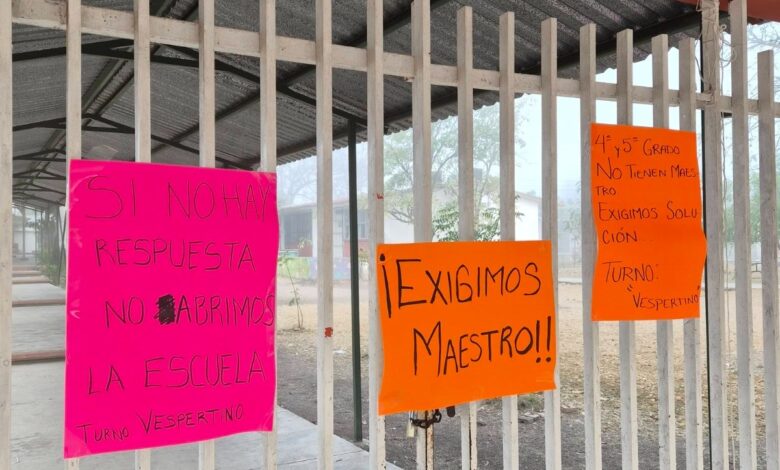 SI NO HAY
RESPUESTA
NO ABRIMOS
LA ESCUELA
TURNO VESPERTINO
¡EXIGIMOS
MAESTRO!!
4° y 5° GRADO
NO TIENEN MAES-
TRO
EXIGIMOS SOLU-
CIÓN...
TURNO:
"VESPERTINO"